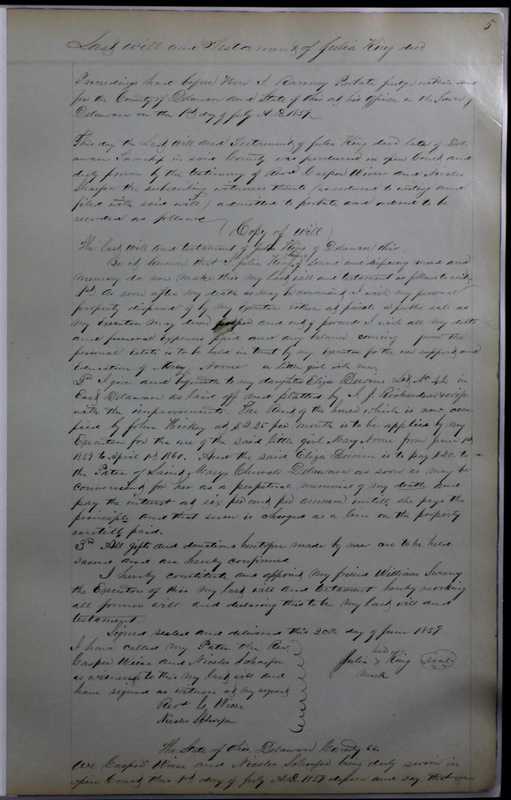 5
Last will and Testament of Julia King decd
Proceedings had before Hon J. Ranney Probate judge within and
for the County of Delaware and State of Ohio at his office in the Town of
Delaware on the 1st day of July A.D. 1859
This day the Last Will and Testament of Julia King decd late of Del
aware Township in said County was produced in open Court and
duly proven by the testimony of Revd Casper Wiese and Nicolas
Schaefer the subscribing witnesses thereto (as reduced to writing and
filed with said will) admitted to probate and ordered to be
recorded as follows
(Copy of Will)
The last will and testament of Julia King of Delaware Ohio
Be it known that I Julia King being of sound and disposing mind and
memory do now make this my last will and testament as follows to wit
1st As soon after my death as may be convenient I wish my personal
property disposed of by my Executor either at private or public sale as
my Executor may deem proper and out of proceeds I wish all my debts
and funeral expenses paid and any balance coming from the
personal estate is to be held in trust by my executor for the use support and
Education of Mary a little girl with me
2nd I give and bequeath to my daughter Eliza Lot No 42 in
East Delaware as laid off and platted by J. J. Richards & wife
with the improvements. The Rent of the house which is now occu
pied by John Hickey at $2.25 per month is to be applied by my
Executor for the use of the said little girl Mary from June 1st
1859 to April 1st 1860. And the said Eliza is to pay $20 to
the Pastor of Saint Marys Church Delaware as soon as may be
convenient for her as a perpetual memorial of my death and
pay the interest at six per cent per annum until she pays the
principle and that sum is charged as a lien on the property
until paid.
3rd All gifts and donations heretofore made by me are to be held
sacred and are hereby confirmed
I hereby constitute and appoint my friend William
the Executor of this my last will and testament hereby revoking
all former will and declaring this to be my last will and
testament
Signed sealed and delivered this 20th day of June 1859
I have called my Pastor the Rev.
Casper Wiese and Nicolas Schaefer
as witnesses to this my last will and
have signed as witness at my request
Julia her X mark King (Seal)
Revd C. Wiese
Nicolas Schaefer
The State of Ohio Delaware County ss.
We Casper Wiese and Nicolas Schaefer being duly sworn in
open Court this 1st day of July A.D. 1859 depose and say that we